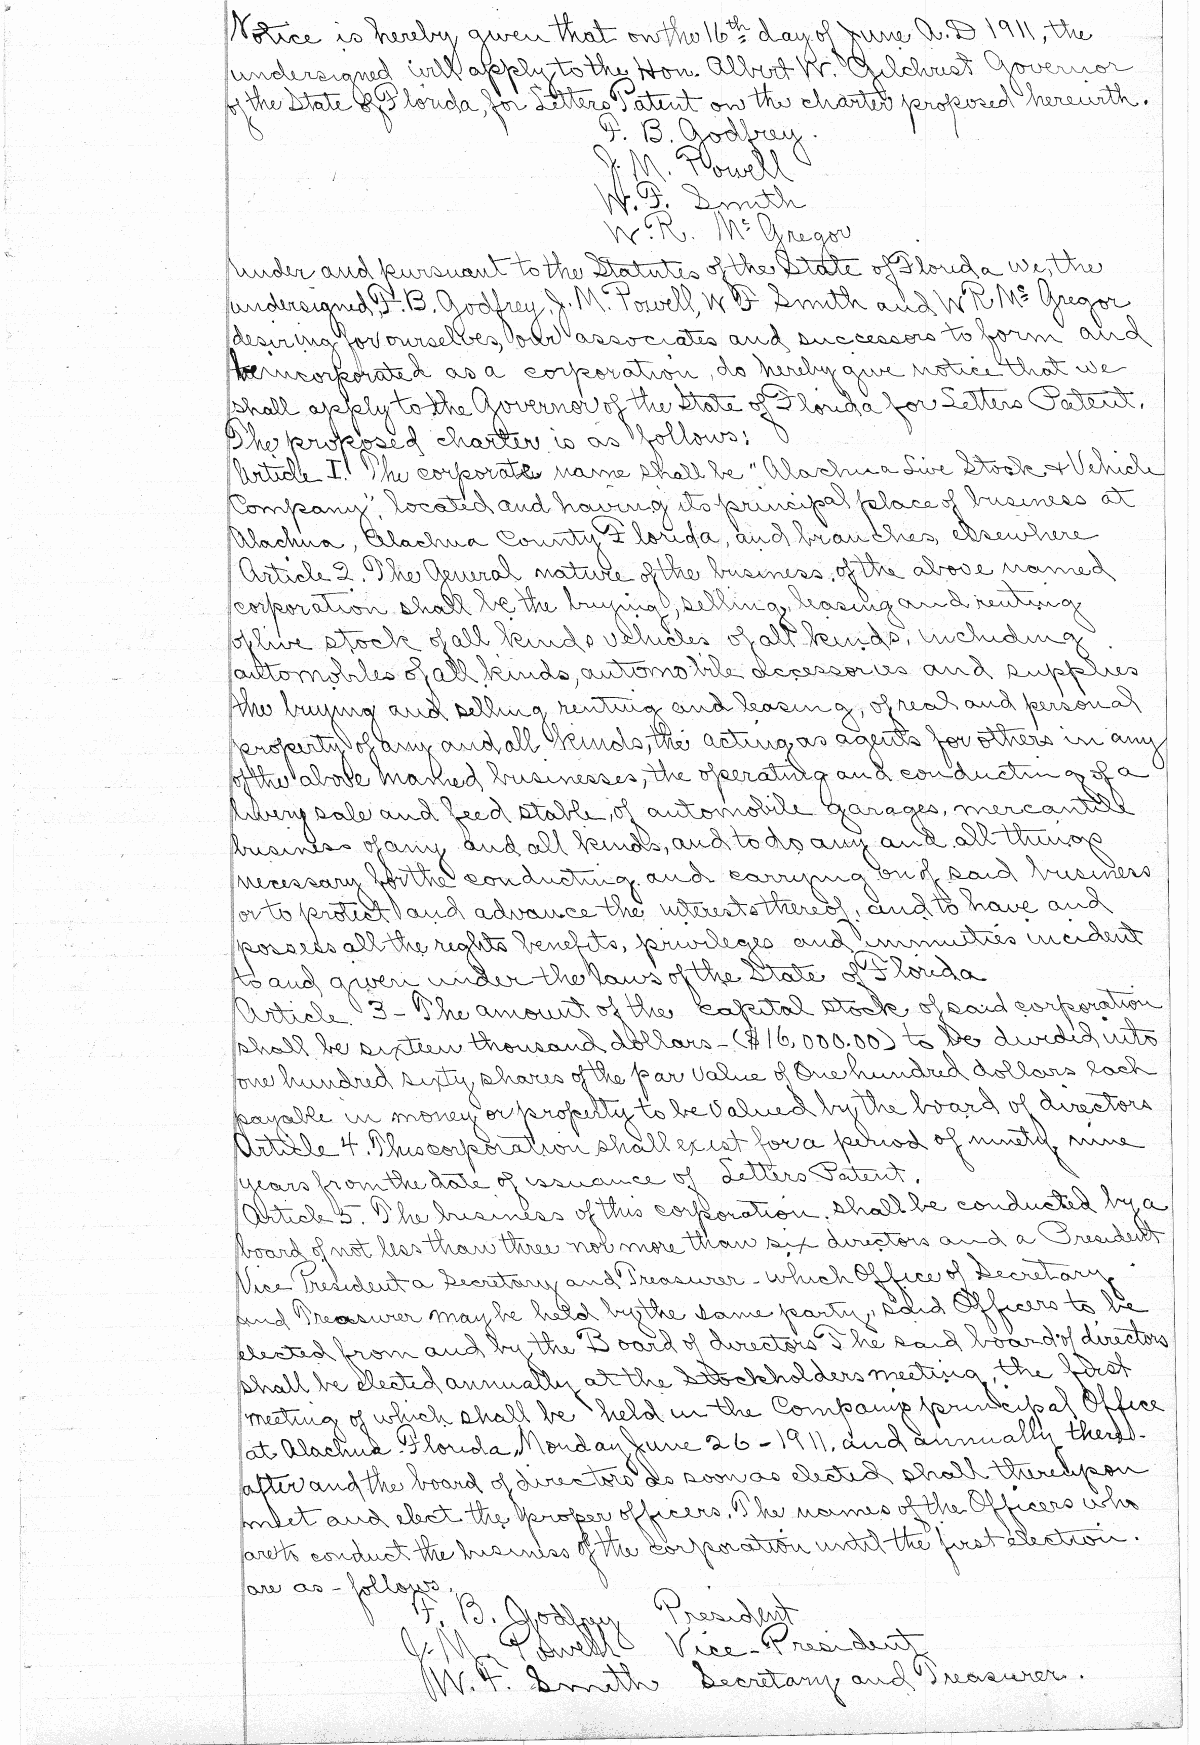 Notice is hereby given that on the 16th day of June A.D 1911, the
undersigned will apply to the Hon. Albert W. Gilchrist Governor
of the State of Florida, for Letters Patent on the charter proposed herewith.
F. B. Godfrey.
J. M. Powell
W. F. Smith
W. R. McGregor
Under and pursuant to the Statutes of the State of Florida we, the
undersigned, F. B. Godfrey, J. M. Powell, W F Smith and W R McGregor
desiring for ourselves, our associates and successors to form and
be incorporated as a corporation, do hereby give notice that we
shall apply to the Governor of the State of Florida for Letters Patent.
The proposed charter is as follows:
Article I. The corporate name shall be "Alachua Live Stock & Vehicle
Company", located and having its principal place of business at
Alachua, Alachua County Florida, and branches elsewhere
Article 2. The General nature of the business, of the above named
corporation shall be the buying, selling, leasing and renting
of live stock of all kinds vehicles of all kinds, including
automobiles of all kinds, automobile accessories and supplies
the buying and selling renting and leasing, of real and personal
property of any and all kinds, the acting as agents for others in any
of the above named businesses, the operating and conducting of a
livery sale and feed stable, of automobile garages, mercantile
business of any and all kinds, and to do any and all things
necessary for the conducting and carrying on of said business
or to protect and advance the interests thereof, and to have and
possess all the rights benefits, privileges and immunities incident
to and given under the laws of the State of Florida
Article 3 - The amount of the capital stock of said corporation
shall be sixteen thousand dollars - ($16,000.00) to be divided into
one hundred sixty shares of the par value of One hundred dollars each
payable in money or property to be valued by the board of directors
Article 4. This corporation shall exist for a period of ninety nine
years from the date of issuance of Letters Patent.
Article 5. The business of this corporation shall be conducted by a
board of not less than three nor more than six directors and a President
Vice President a Secretary and Treasurer - which Office of Secretary
and Treasurer may be held by the same party, said Officers to be
elected from and by the Board of directors The said board of directors
shall be elected annually at the Stockholders meeting, the first
meeting of which shall be held in the Companys principal Office
at Alachua Florida, Monday June 26 - 1911, and annually there-
after and the board of directors as soon as elected shall thereupon
meet and elect the proper officers. The names of the Officers who
are to conduct the business of the corporation until the first election.
are as - follows.
F. B. Godfrey President
J. M. Powell Vice - President
W. F. Smith Secretary and Treasurer.